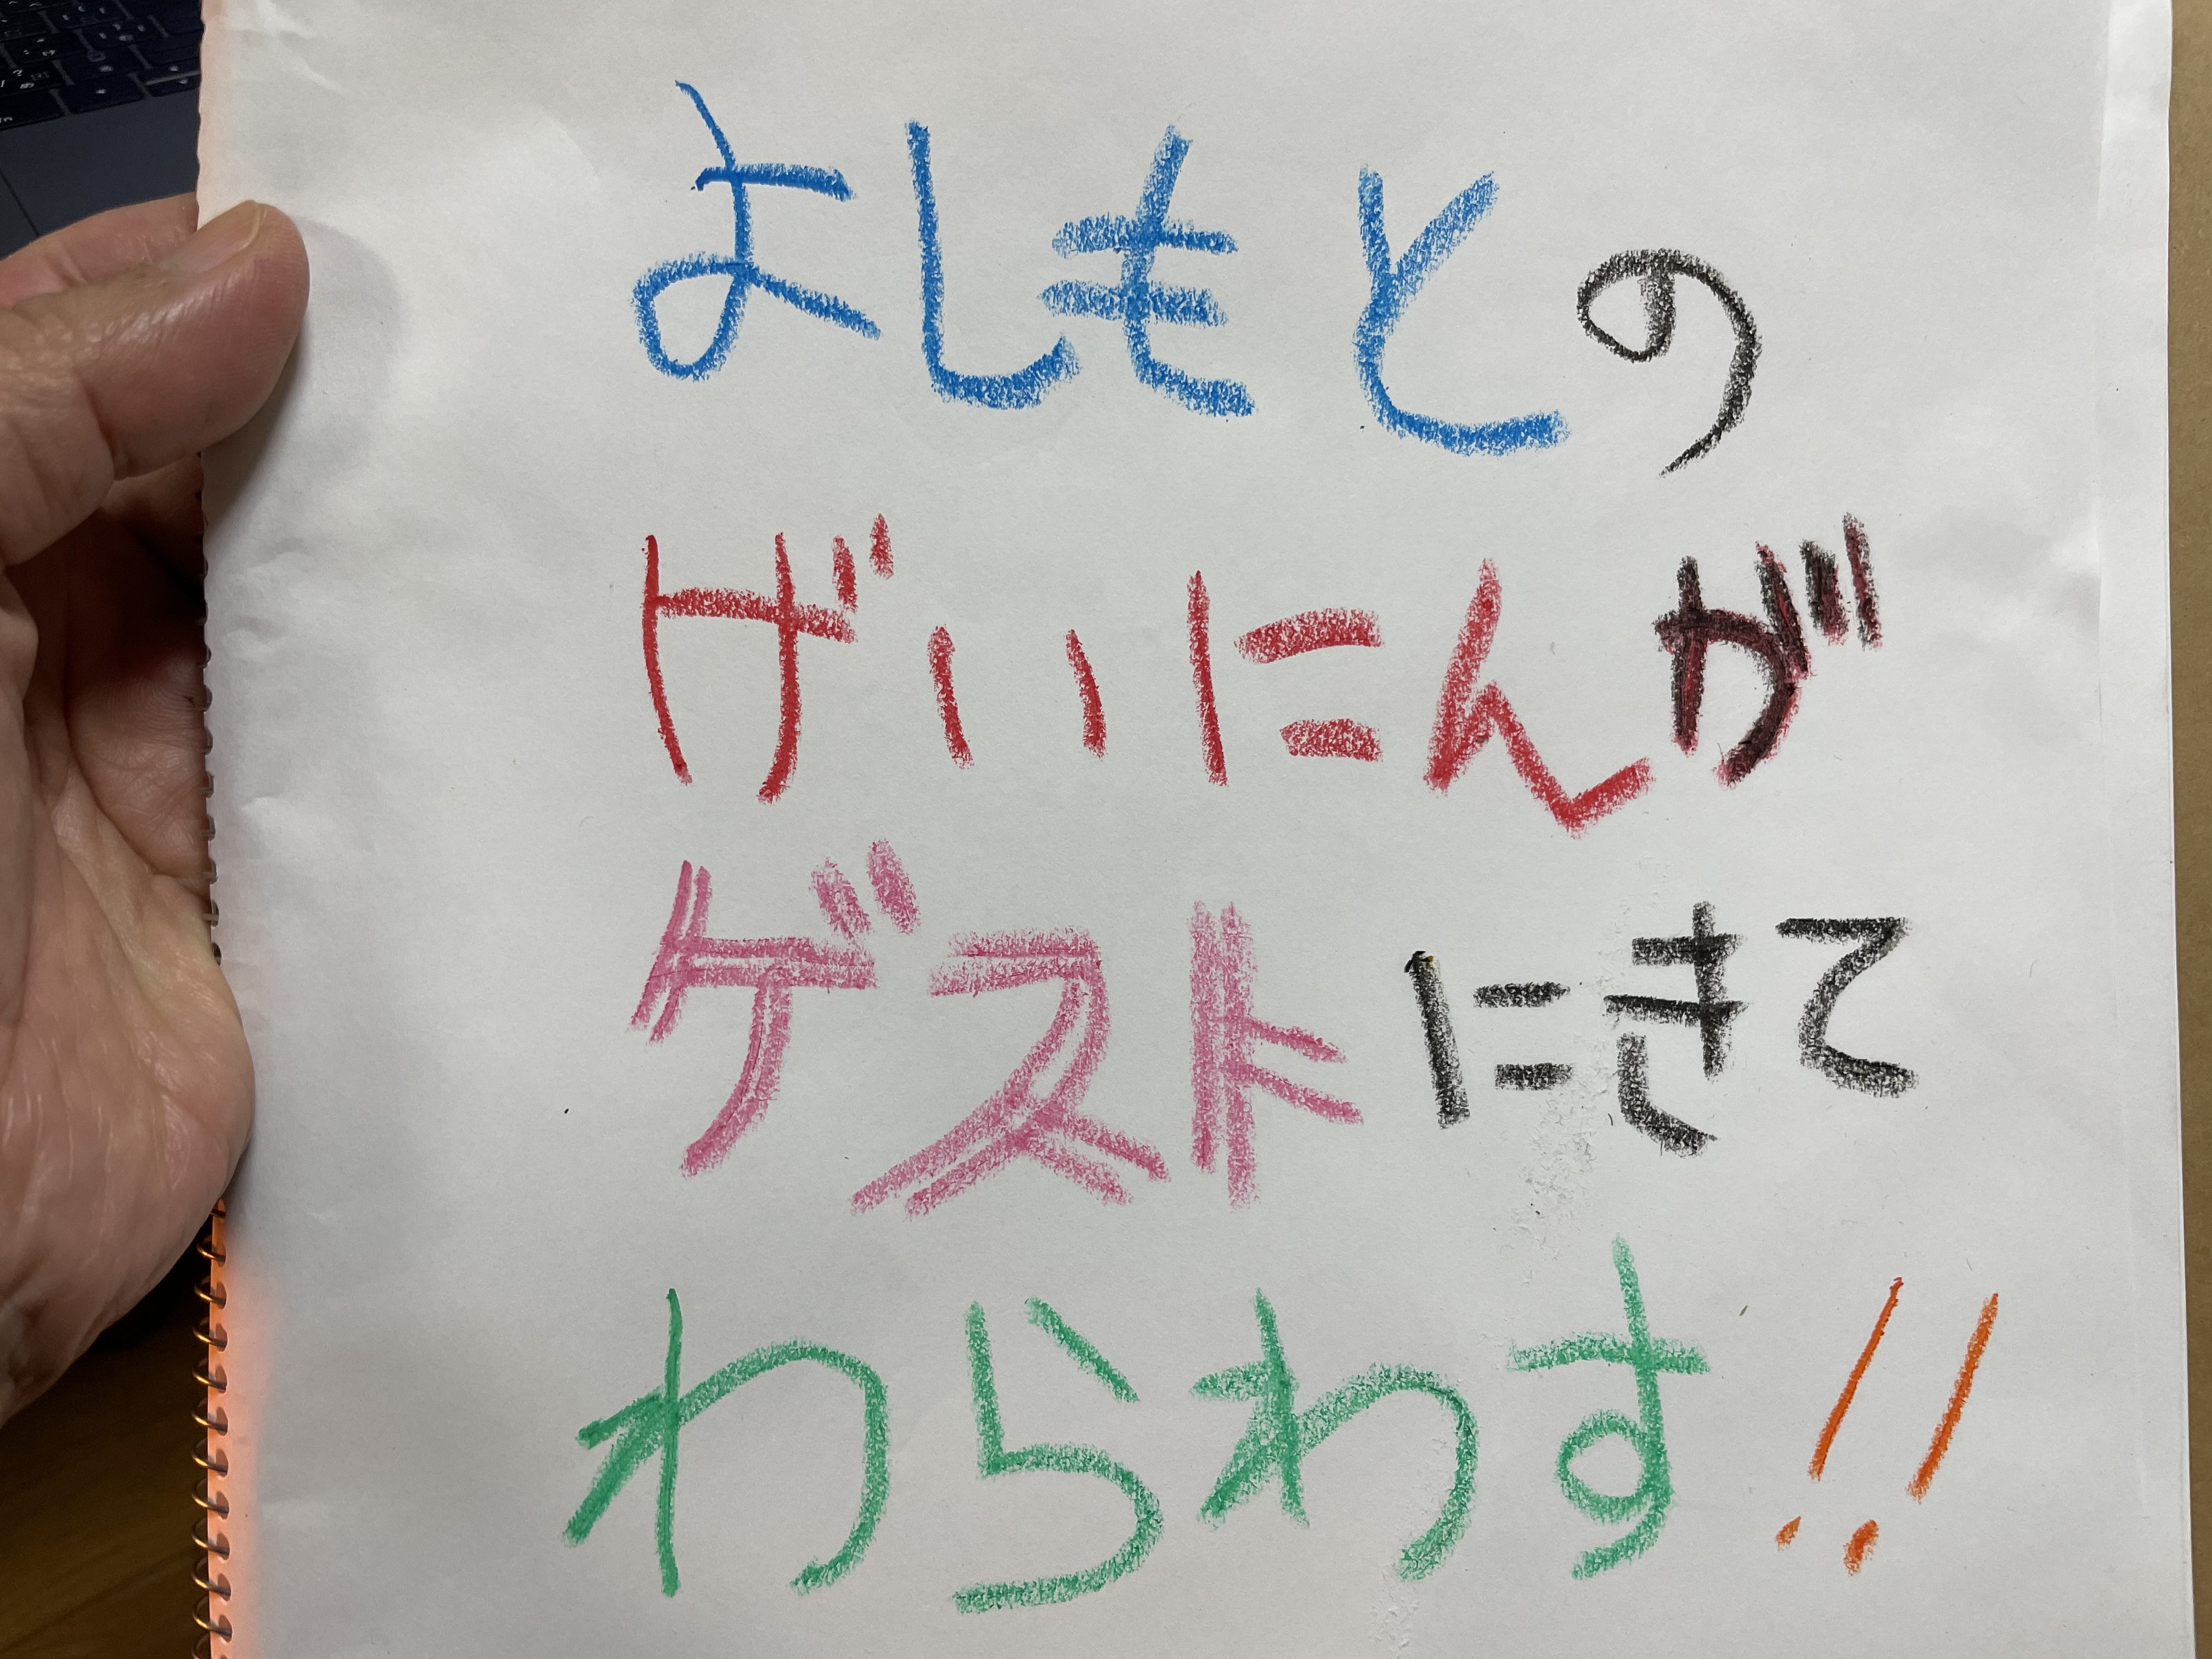 よしもとの
げいにんが
ゲストにきて
わらわす!!